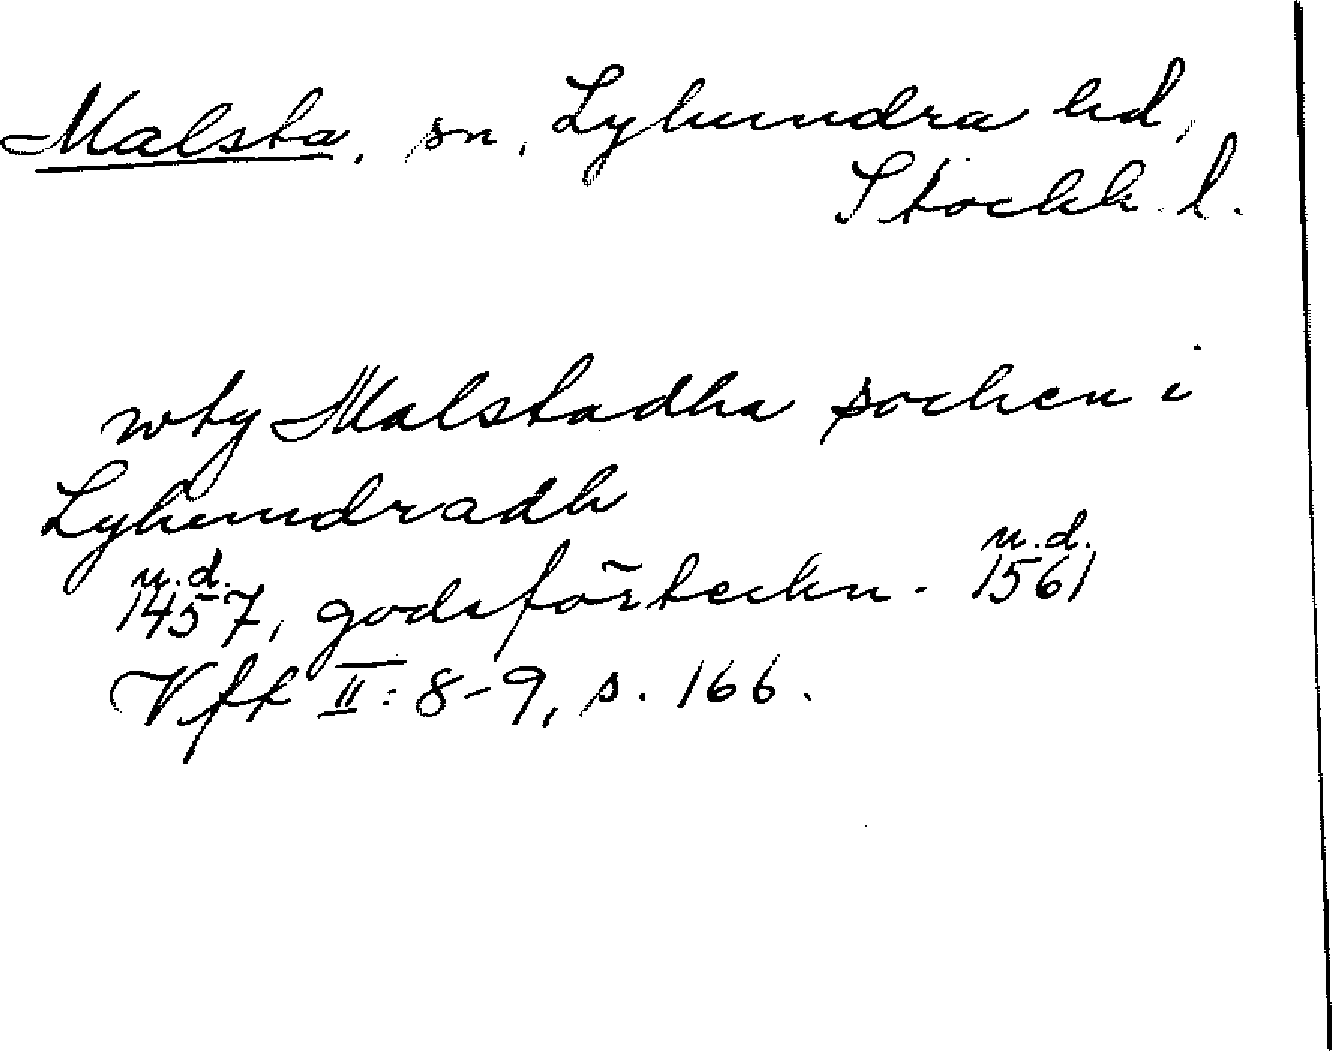 Malsta, sn, Lyhundra hd,
Stockh. l.
wty Malstadha sochen i
Lyhundradh
u.d. u.d.
1457, godsförteckn. 1561
Vfk II: 8-9, s. 166.